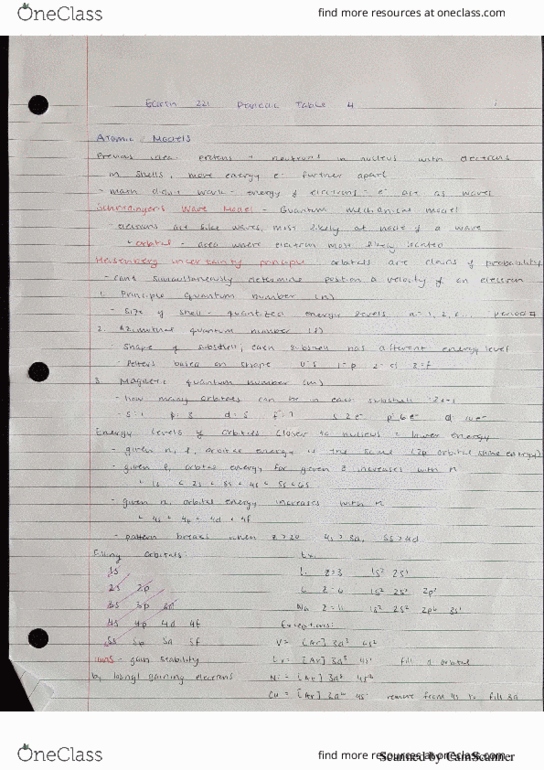 OneClass
find more resources at oneclass.com
Earth 221 Periodic Table 4
Atomic Models
Previous idea protons + neutrons in nucleus with electrons
in shells, more energy e⁻ further apart
energy of electrons - e⁻ act as waves
Schrodingers Wave Model - Quantum Mechanical model
- electrons are like waves, most likely at peak of a wave
orbital - area where electron most likely located
Heisenberg uncertainty principle orbitals are clouds of probability
- cant simultaneously determine position & velocity of an electron
1. Principle quantum number (n)
- Size of shell - quantized energy levels n = 1, 2, 3...
2. Azimuthal quantum number (l)
- Shape of subshell, each subshell has different energy level
- letters based on shape 0=s 1=p 2=d 3=f
3. Magnetic quantum number (m)
- how many orbitals can be in each subshell
s:1 p:3 d:5 f:7 s 2e⁻ p 6e⁻ d 10e⁻
Energy levels of orbitals closer to nucleus = lower energy
- given n, l, orbital energy is the same (2p orbital same energy)
- given l, orbital energy for given l increases with n
1s < 2s < 3s < 4s < 5s < 6s
- given n, orbital energy increases with
4s < 4p < 4d < 4f
- pattern breaks when z > 20 4s > 3d, 5s > 4d
Filling Orbitals: Ex.
1s Li z=3 1s² 2s¹
2s 2p C z=6 1s² 2s² 2p²
3s 3p 3d Na z=11 1s² 2s² 2p⁶ 3s¹
4s 4p 4d 4f Exceptions:
5s 5p 5d 5f V = [Ar] 3d³ 4s²
Ions - gain stability Cr = [Ar] 3d⁵ 4s¹ fill d orbital
by losing/gaining electrons Ni = [Ar] 3d⁸ 4s²
Cu = [Ar] 4s¹ remove from 4s to fill 3d
OneClass
find more resources at oneclass.com
Scanned by CamScanner